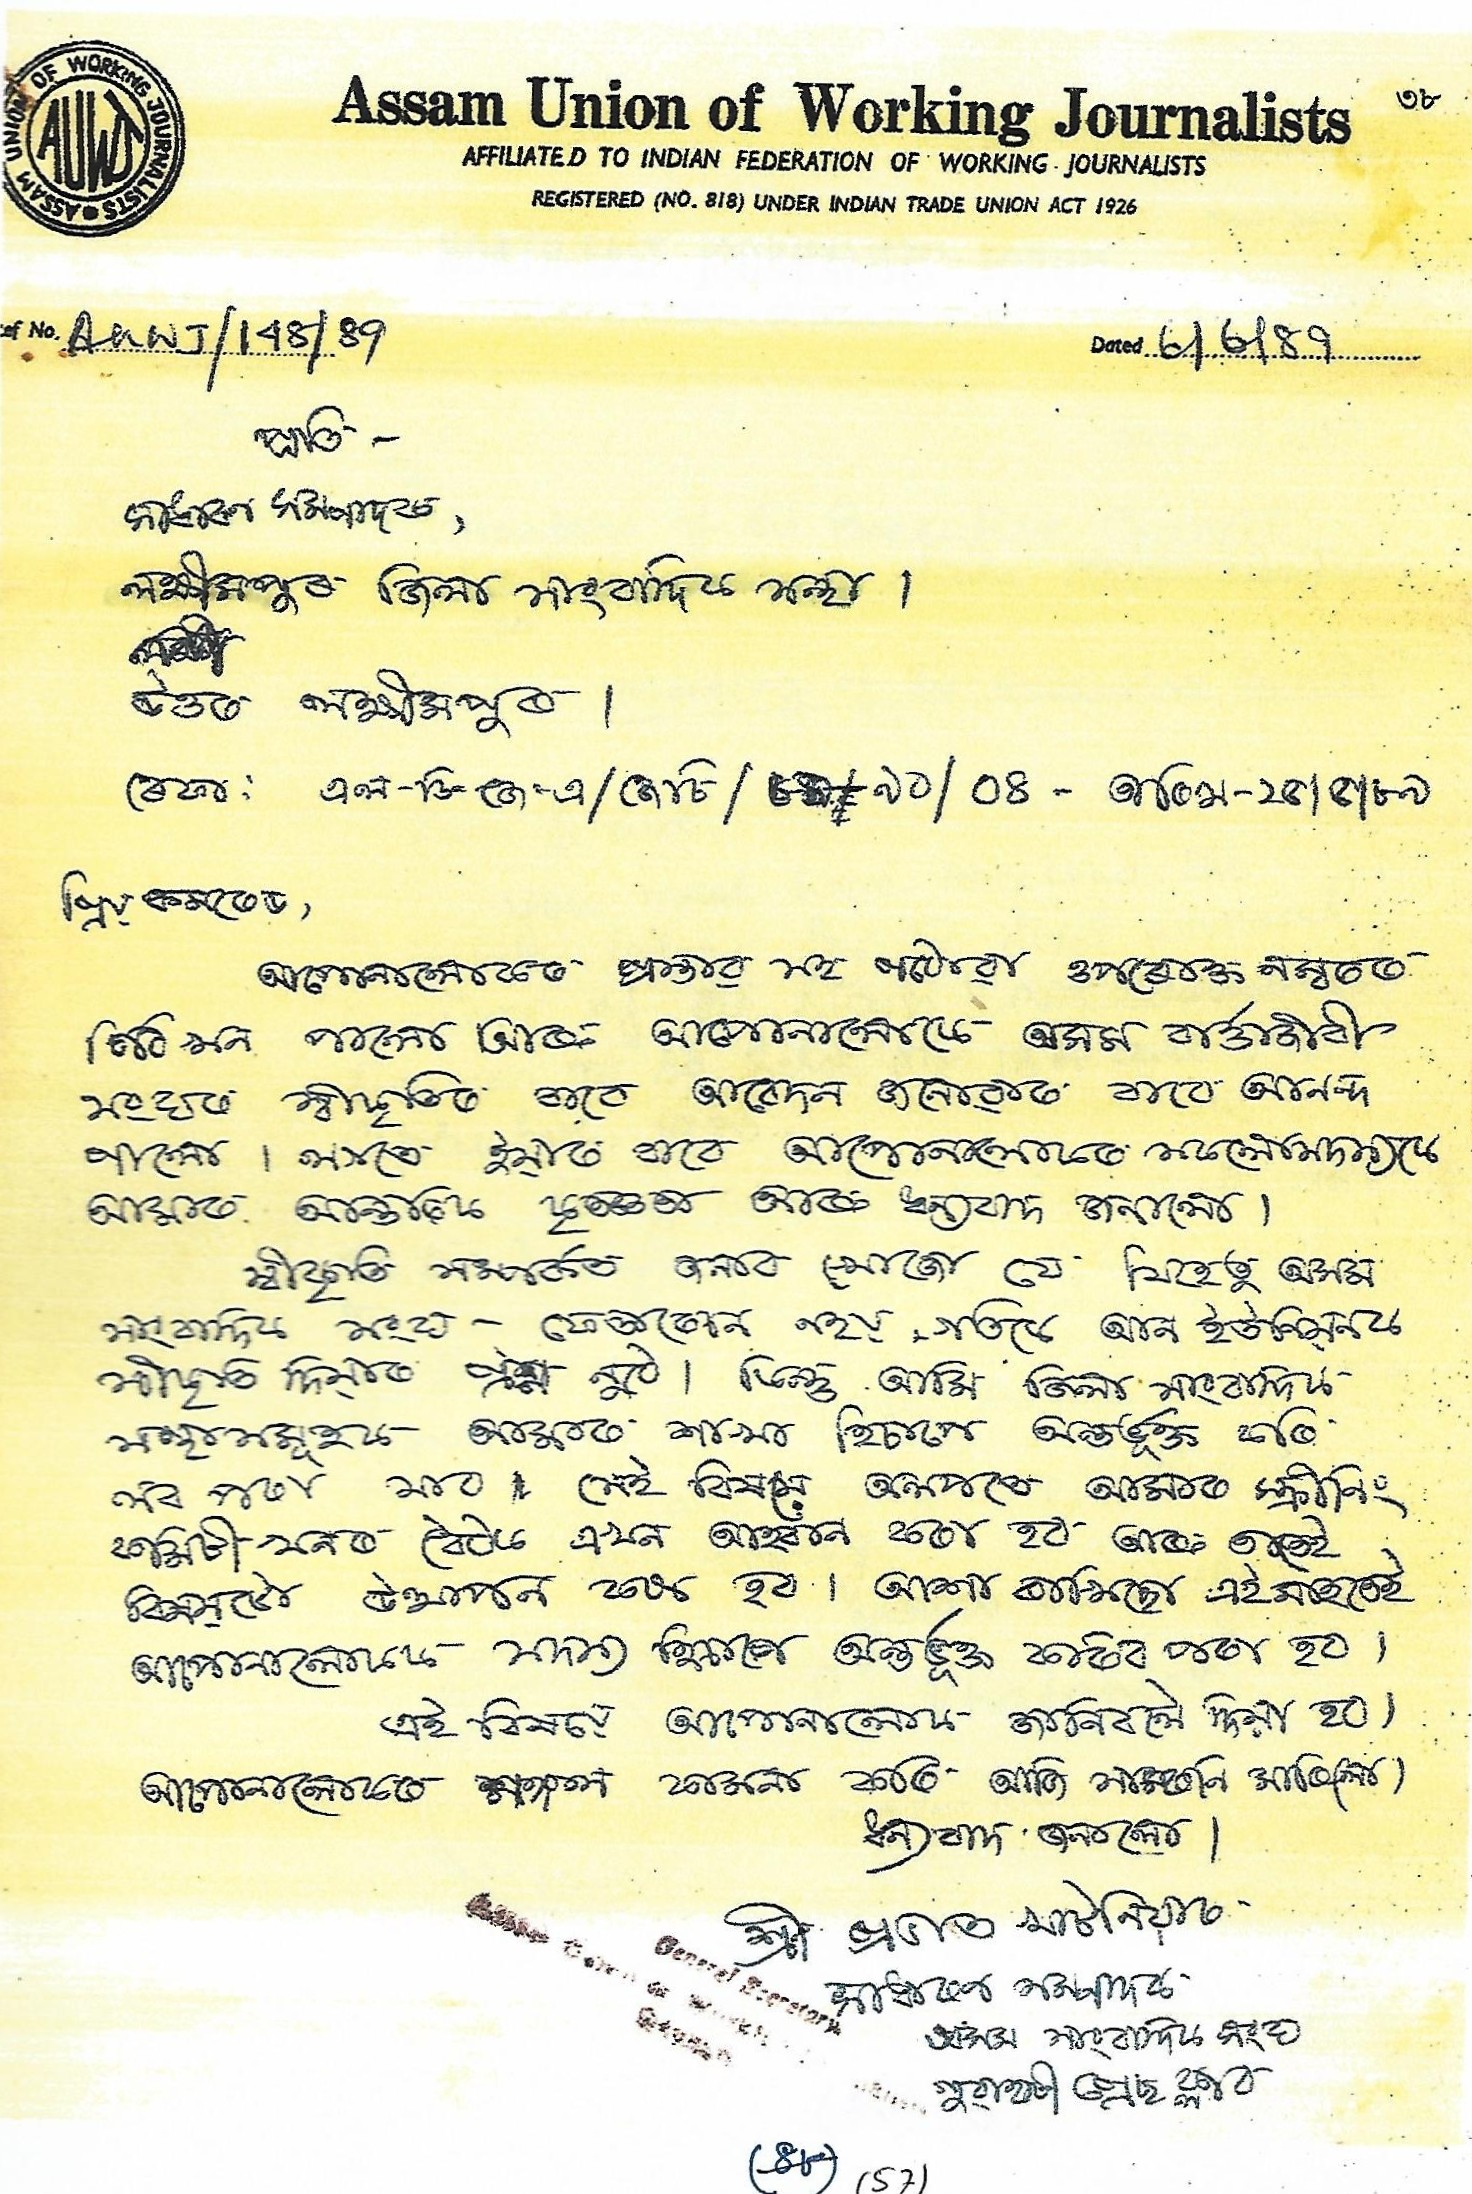 Assam Union of Working Journalists
৩৮
AFFILIATED TO INDIAN FEDERATION OF WORKING JOURNALISTS
REGISTERED (NO. 818) UNDER INDIAN TRADE UNION ACT 1926
ASSAM UNION OF WORKING JOURNALISTS
AUWJ
ef No. AUWJ/148/89
Dated 6/6/89
প্ৰতি -
সাধাৰণ সম্পাদক,
লক্ষীমপুৰ জিলা সাংবাদিক সন্থা ।
উত্তৰ লক্ষীমপুৰ ।
ৰেফা: এল-ডি-জে-এ/জেচি/ ৯০/০৪ - তাৰিখ-২৫/৫/৮৯
প্ৰিয় কমৰেড,
আপোনালোকৰ প্ৰস্তাৱ সহ পঠোৱা ওপৰোক্ত নম্বৰৰ
চিঠি খন পালো আৰু আপোনালোকে অসম বাৰ্তাজীৱী
সংঘৰ স্বীকৃতিৰ বাবে আবেদন জনোৱাত বাবে আনন্দ
পালো । লগতে ইয়াৰ বাবে আপোনালোকৰ সকলো সদস্যকে
আমাৰ আন্তৰিক কৃতজ্ঞতা আৰু ধন্যবাদ জনালো ।
স্বীকৃতি সম্পৰ্কত জনাব খোজো যে যিহেতু অসম
সাংবাদিক সংঘ - ফেডাৰেচন নহয়, গতিকে আন ইউনিয়নক
স্বীকৃতি দিয়াৰ প্ৰশ্ন নুঠে । কিন্তু আমি জিলা সাংবাদিক
সন্থাসমূহক আমাৰ শাখা হিচাপে অন্তৰ্ভূক্ত কৰি
লব পৰা যাব । সেই বিষয়ে অলপতে আমাৰ স্ক্ৰীনিং
কমিটী খনৰ বৈঠক এখন আহ্বান কৰা হব আৰু তাতেই
বিষয়টো উত্থাপন কৰা হব । আশা ৰাখিছো এই মাহতেই
আপোনালোকক সদস্য হিচাপে অন্তৰ্ভূক্ত কৰিব পৰা হব ।
এই বিষয়ে আপোনালোক জানিবলৈ দিয়া হব ।
আপোনালোকৰ কামনা কৰি আজি সামৰণি মাৰিলো ।
ধন্যবাদ জনালো ।
শ্ৰী প্ৰভাত
সাধাৰণ সম্পাদক
অসম সাংবাদিক সংঘ
গুৱাহাটী প্ৰেছ ক্লাব
General Secretary
(৪৮) (57)